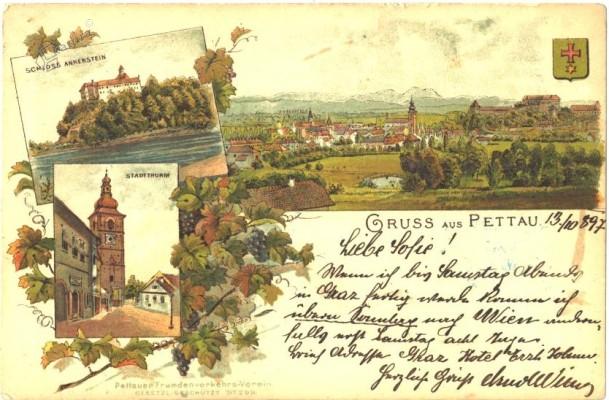 SCHLOSS ANKENSTEIN
STADTTHURM
GRUSS AUS PETTAU. 13/10 897
Liebe Sofie!
Wenn ich bis Samstag Abends
in Graz fertig werde komme ich
über nach Wien
falls erst Samstag acht
Adresse Graz Hotel Erzh. Johann.
Herzlich Grüß
Pettauer Fremdenverkehrs-Verein
GESETZL. GESCHÜTZT